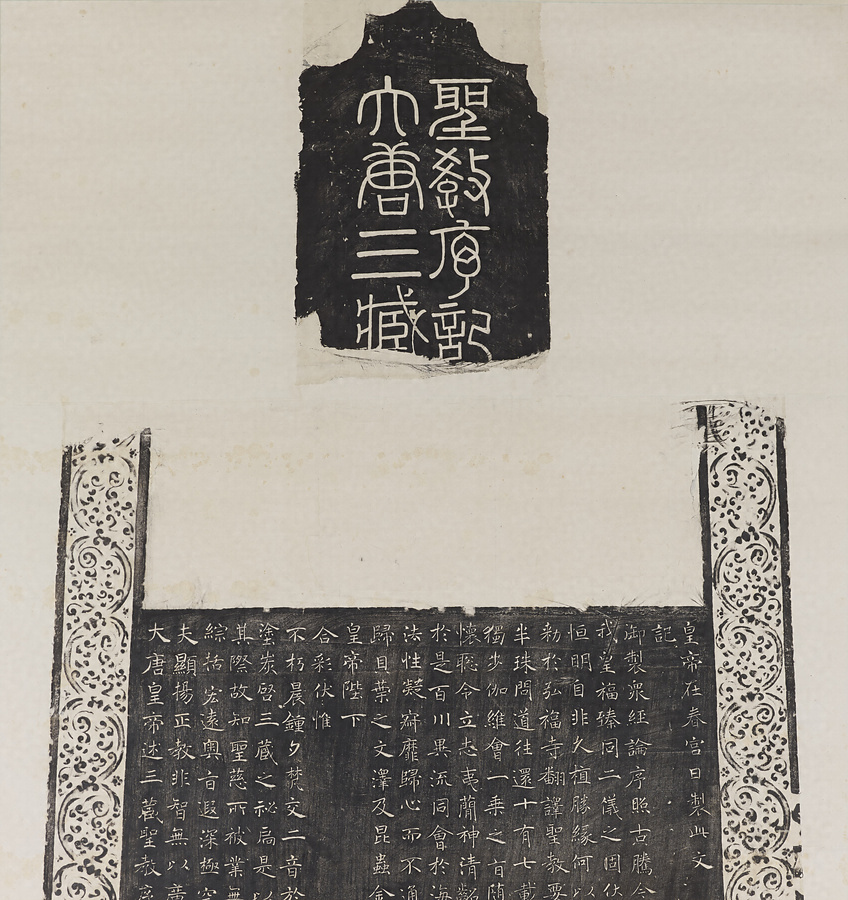 大唐三藏
聖教序記
大唐皇帝述三藏聖教序
夫顯揚正教非智無以廣
綜括宏遠奧旨遐深極空
其際故知聖慈所被業無
塗炭啓三藏之祕扃是以
不朽晨鐘夕梵交二音於
合彩伏惟
皇帝陛下
歸貝葉之文澤及昆蟲金
法性凝寂靡歸心而不通
於是百川異流同會於海
懷聦令立志夷簡神清齠
獨步伽維會一乘之旨隨
半珠問道往還十有七載
勑於弘福寺翻譯聖教要
恒明自非久植勝緣何以
我皇福臻同二儀之固伏
御製衆經論序照古騰今
記
皇帝在春宮日製此文